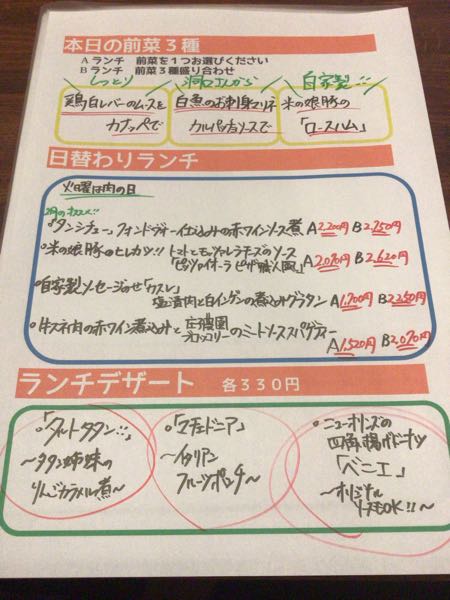 本日の前菜３種
Aランチ　前菜を１つお選びください
Bランチ　前菜３種盛り合わせ
しっとり
洞口さんから
自家製!!
鶏白レバーのムースを
カナッペで
白魚のお刺身マリネ
カルパッチョソースで
米の娘豚の
「ロースハム」
日替わりランチ
火曜は肉の日
2月のオススメ!!
「タンシチュー」フォンドヴォー仕込みの赤ワインソース煮 A2,200円 B2,750円
米の娘豚のヒレカツ!! トマトとモッツァレラチーズのソース
「ピッツァイオーラ ピザ職人風」 A2,070円 B2,620円
自家製ソーセージのせ「カスレ」
塩漬肉と白インゲンの煮込みグラタン A1,700円 B2,250円
牛スネ肉の赤ワイン煮込みと 庄農園
ブロッコリーのミートソーススパゲティー
A1,520円 B2,070円
ランチデザート　各３３０円
「タルトタタン!!」
〜タタン姉妹の
りんごカラメル煮〜
「マチェドニア」
〜イタリアン
フルーツポンチ〜
ニューオリンズの
四角揚げドーナツ
「ベニエ」
〜オリジナル